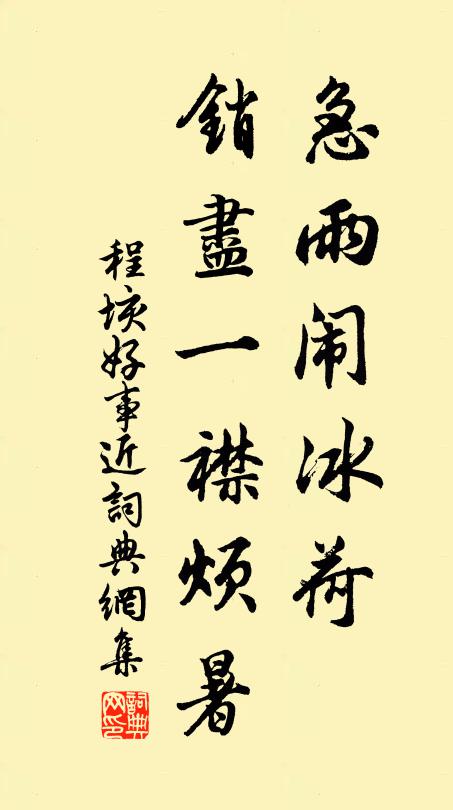 急雨闹冰荷
銷盡一襟煩暑
程垓好事近詞典網集
詞典网印